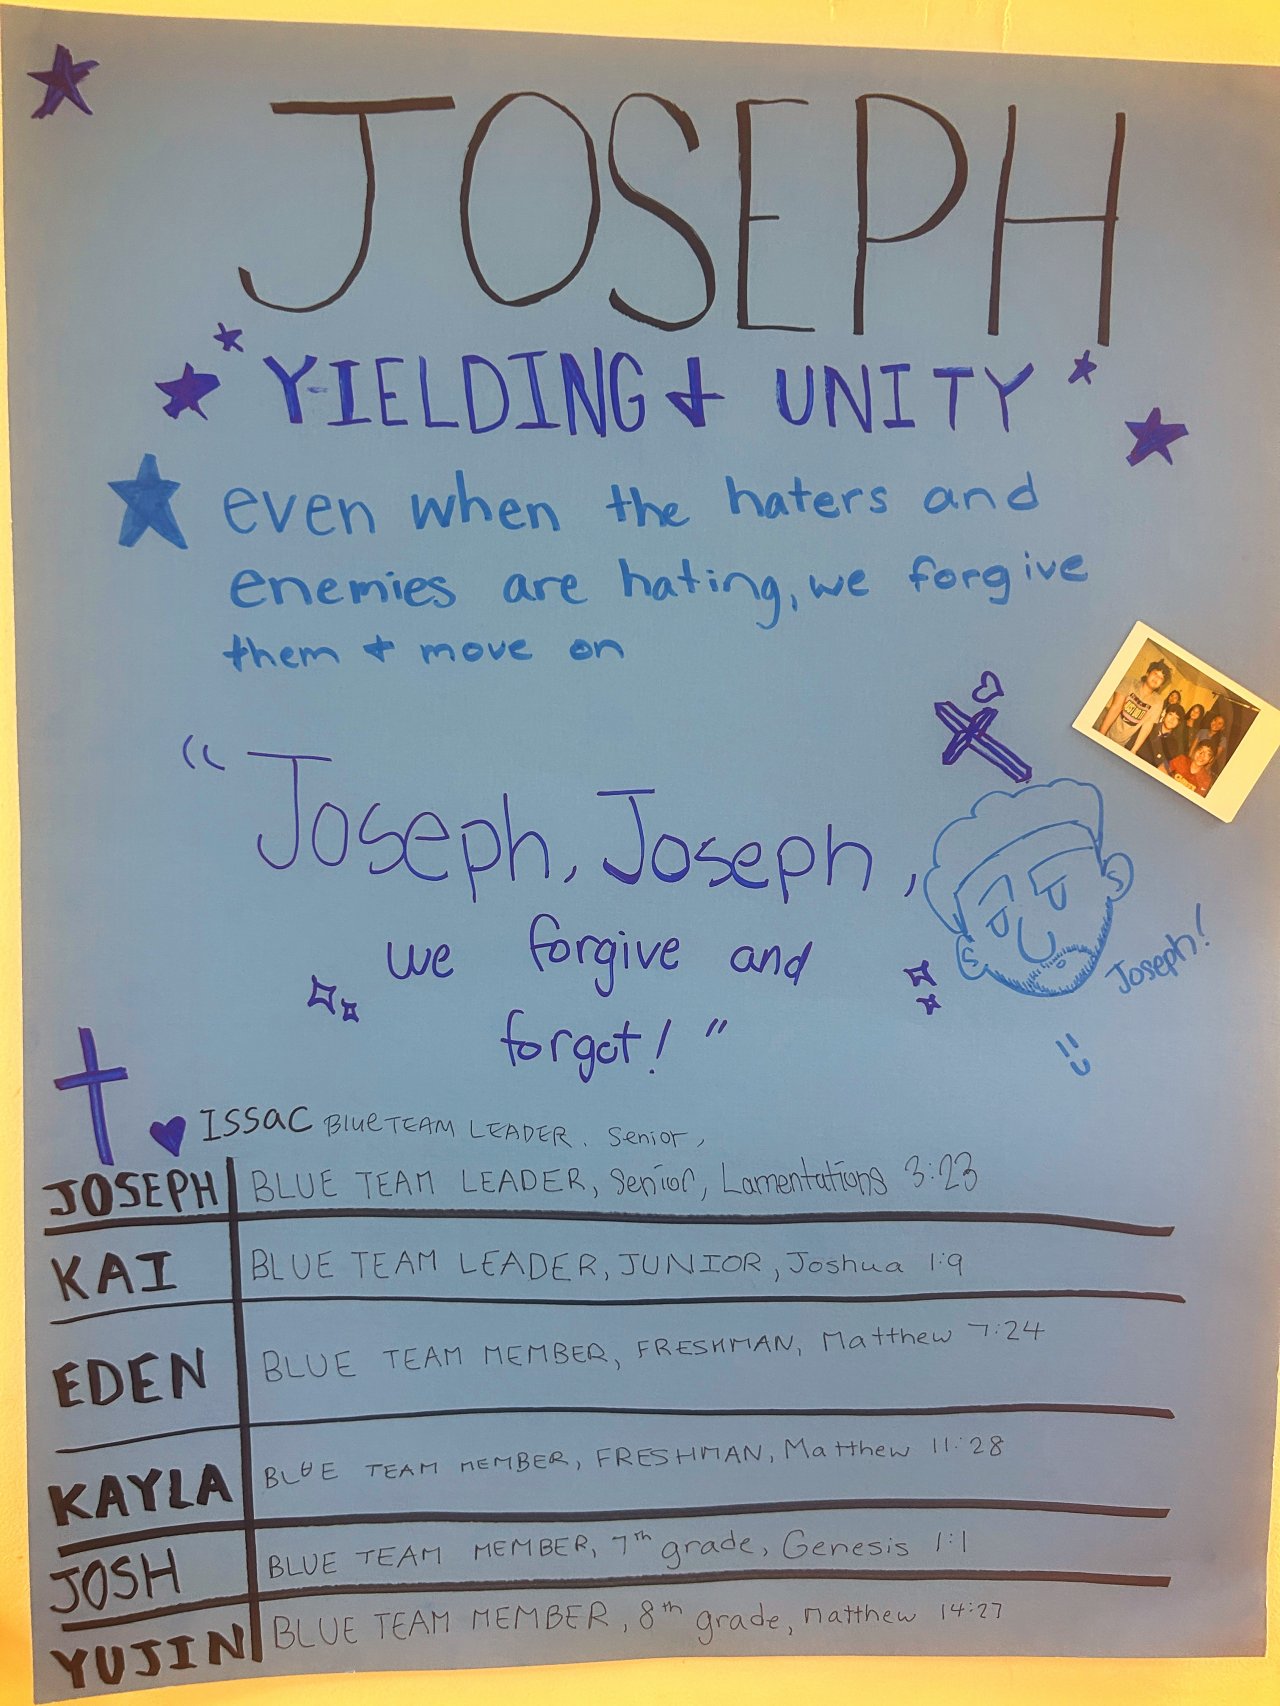 JOSEPH
YIELDING & UNITY
even when the haters and
enemies are hating, we forgive
them + move on
"Joseph, Joseph,
we forgive and
forget!"
Joseph!
ISSAC BlueTEAM LEADER. Senior,
JOSEPH BLUE TEAM LEADER, Senior, Lamentations 3:23
KAI BLUE TEAM LEADER, JUNIOR, Joshua 1:9
EDEN BLUE TEAM MEMBER, FRESHMAN, Matthew 7:24
KAYLA BLUE TEAM MEMBER, FRESHMAN, Matthew 11:28
JOSH BLUE TEAM MEMBER, 7th grade, Genesis 1:1
YUJIN BLUE TEAM MEMBER, 8th grade, Matthew 14:27